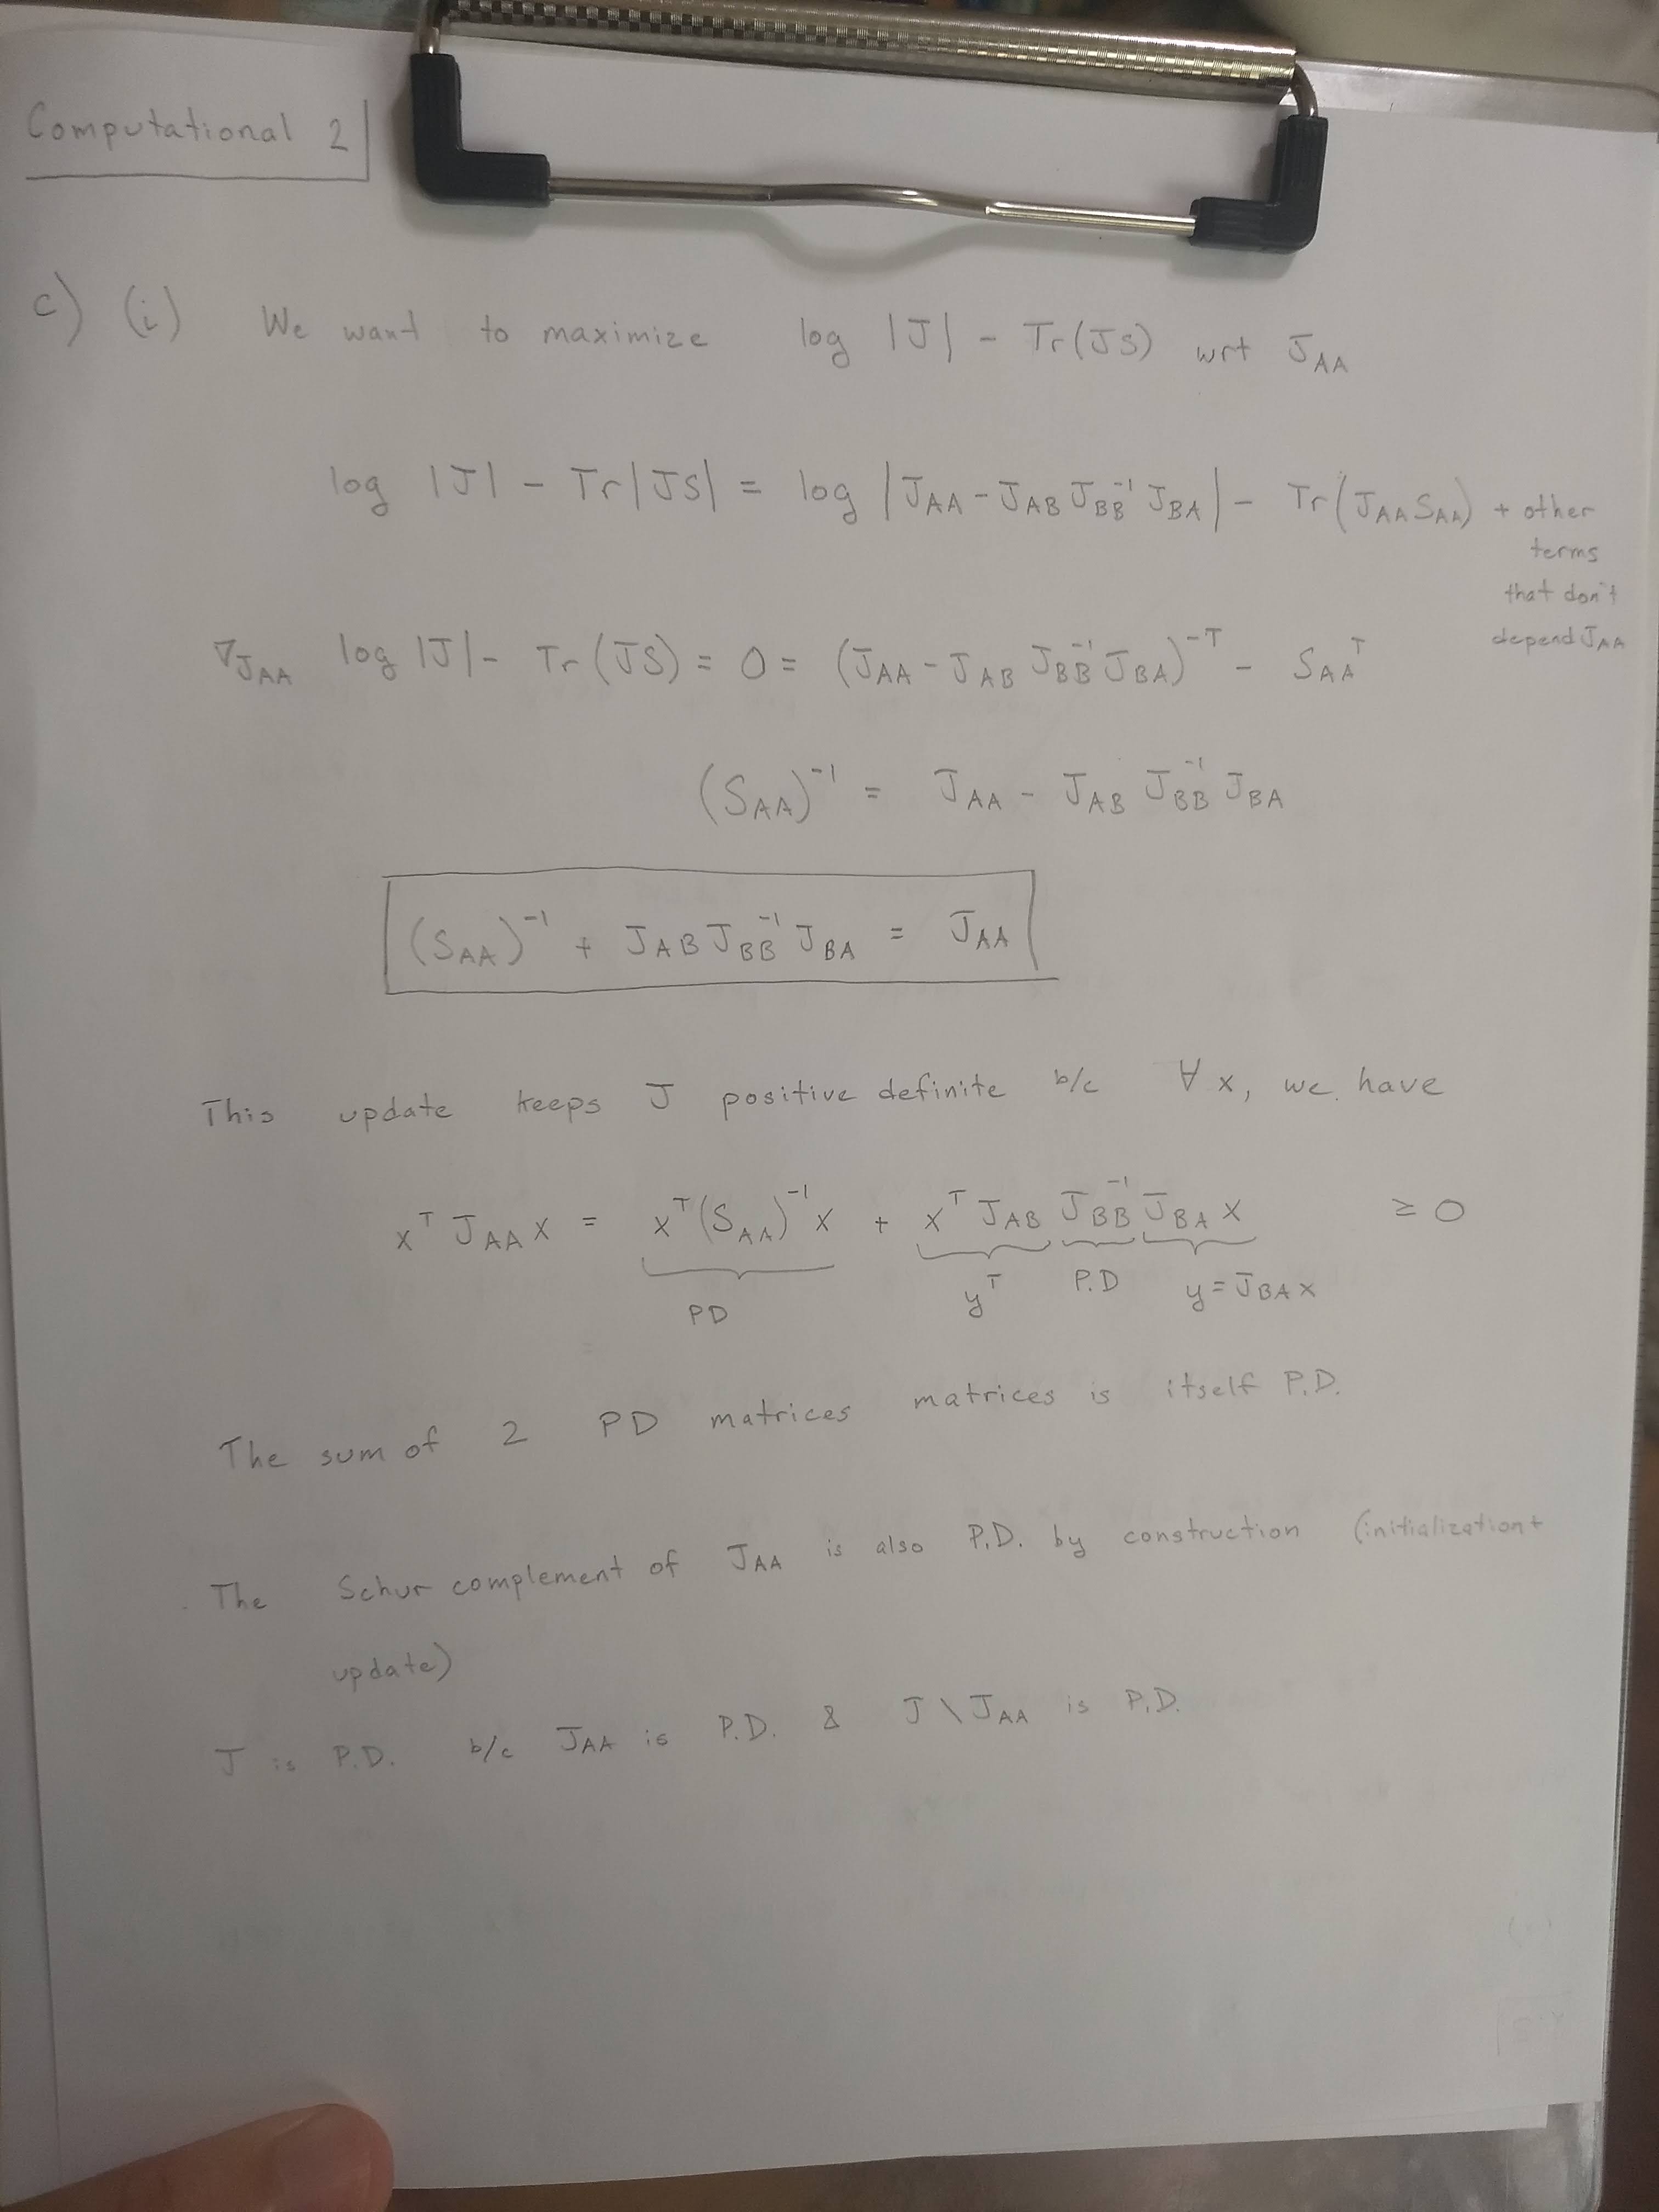 Computational 2
c) (i) We want to maximize log |J| - Tr(JS) wrt J_AA
log |J| - Tr|JS| = log |J_AA - J_AB J_BB^-1 J_BA| - Tr(J_AA S_AA) + other
terms
that don't
depend J_AA
∇_J_AA log |J| - Tr(JS) = 0 = (J_AA - J_AB J_BB^-1 J_BA)^-T - S_AA^T
(S_AA)^-1 = J_AA - J_AB J_BB^-1 J_BA
(S_AA)^-1 + J_AB J_BB^-1 J_BA = J_AA
This update keeps J positive definite b/c ∀ x, we have
x^T J_AA x = x^T (S_AA)^-1 x + x^T J_AB J_BB^-1 J_BA x ≥ 0
PD y^T P.D y = J_BA x
The sum of 2 PD matrices matrices is itself P.D.
The Schur complement of J_AA is also P.D. by construction (initialization +
update)
J is P.D. b/c J_AA is P.D. & J \ J_AA is P.D.